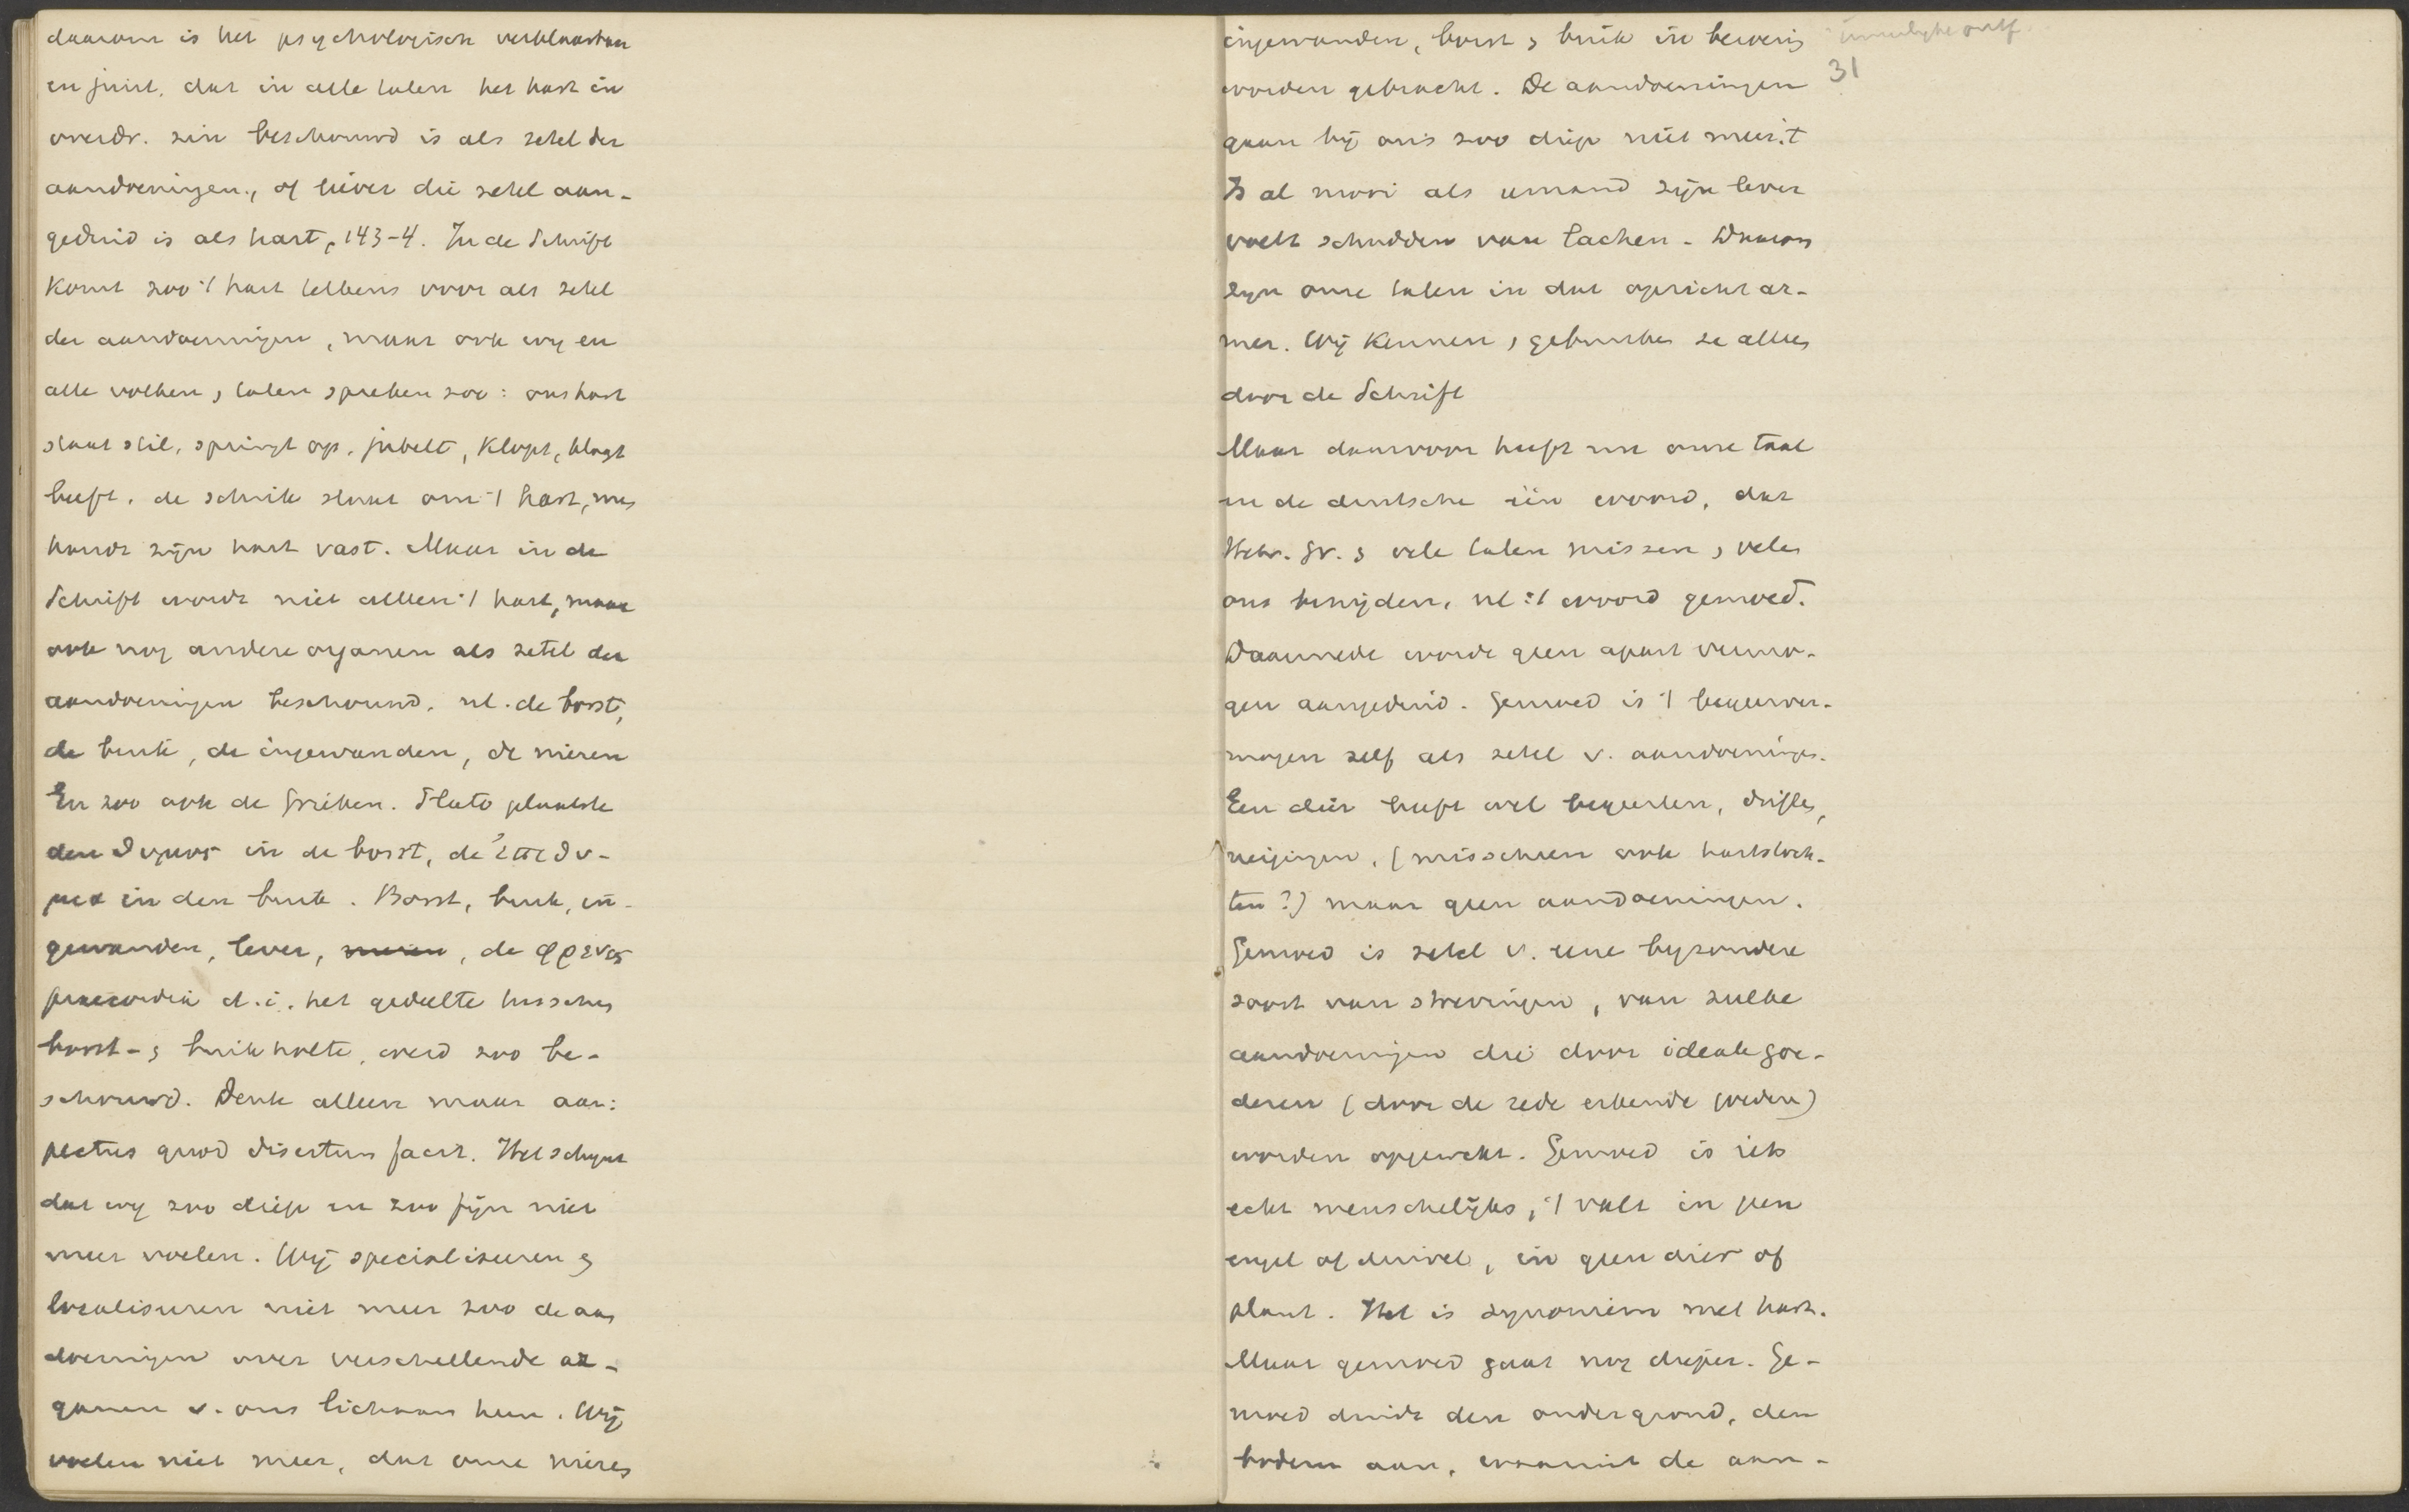 daarom is het psychologisch verklaarbaar
en juist, dat in alle talen het hart in
overdr. zin beschouwd is als zetel der
aandoeningen, of liever die zetel aan-
geduid is als hart, 143-4. In de Schrift
komt zoo 't hart telkens voor als zetel
der aandoeningen, maar ook wij en
alle volken, talen spreken zoo: ons hart
staat stil, springt op, jubelt, klopt, klaagt
beeft, de schrik slaat om 't hart, men
houdt zijn hart vast. Maar in de
Schrift wordt niet alleen 't hart, maar
ook nog andere organen als zetel der
aandoeningen beschouwd, nl. de borst,
de buik, de ingewanden, de nieren
En zoo ook de Grieken. Plato plaatste
den θυμος in de borst, de ἐπιθυ-
μια in den buik. Borst, buik, in-
gewanden, lever, nieren, de φρενες
praecordia d.i. het gedeelte tusschen
borst- & buikholte, werd zoo be-
schouwd. Denk alleen maar aan:
pectus quod disertum facit. Het schijnt
dat wij zoo diep en zoo fijn niet
meer voelen. Wij specialiseeren &
localiseeren niet meer zoo de aan
doeningen over verschillende or-
ganen v. ons lichaam heen. Wij
voelen niet meer, dat onze nieren
ingewanden, borst & buik in beweging
worden gebracht. De aandoeningen
gaan bij ons zoo diep niet meer. 't
Is al mooi als iemand zijn lever
voelt schudden van lachen. Daarom
zijn onze talen in dat opzicht ar-
mer. Wij kennen, gebruiken ze alleen
door de Schrift
Maar daarvoor heeft nu onze taal
en de duitsche één woord, dat
Hebr. Gr. & vele talen missen, velen
ons benijden, nl. 't woord gemoed.
Daarmede wordt geen apart vermo-
gen aangeduid. Gemoed is 't begeerver-
mogen zelf als zetel v. aandoeningen.
Een dier heeft wel begeerten, driften,
neigingen, (misschien ook hartstoch-
ten?) maar geen aandoeningen.
Gemoed is zetel v. eene byzondere
soort van strevingen, van zulke
aandoeningen die door ideale goe-
deren (door de rede erkende goederen)
worden opgewekt. Gemoed is iets
echt menschelijks, 't valt in geen
engel of duivel, in geen dier of
plant. Het is synoniem met hart.
Maar gemoed gaat nog dieper. Ge-
moed duidt den ondergrond, den
bodem aan, waaruit de aan-
31